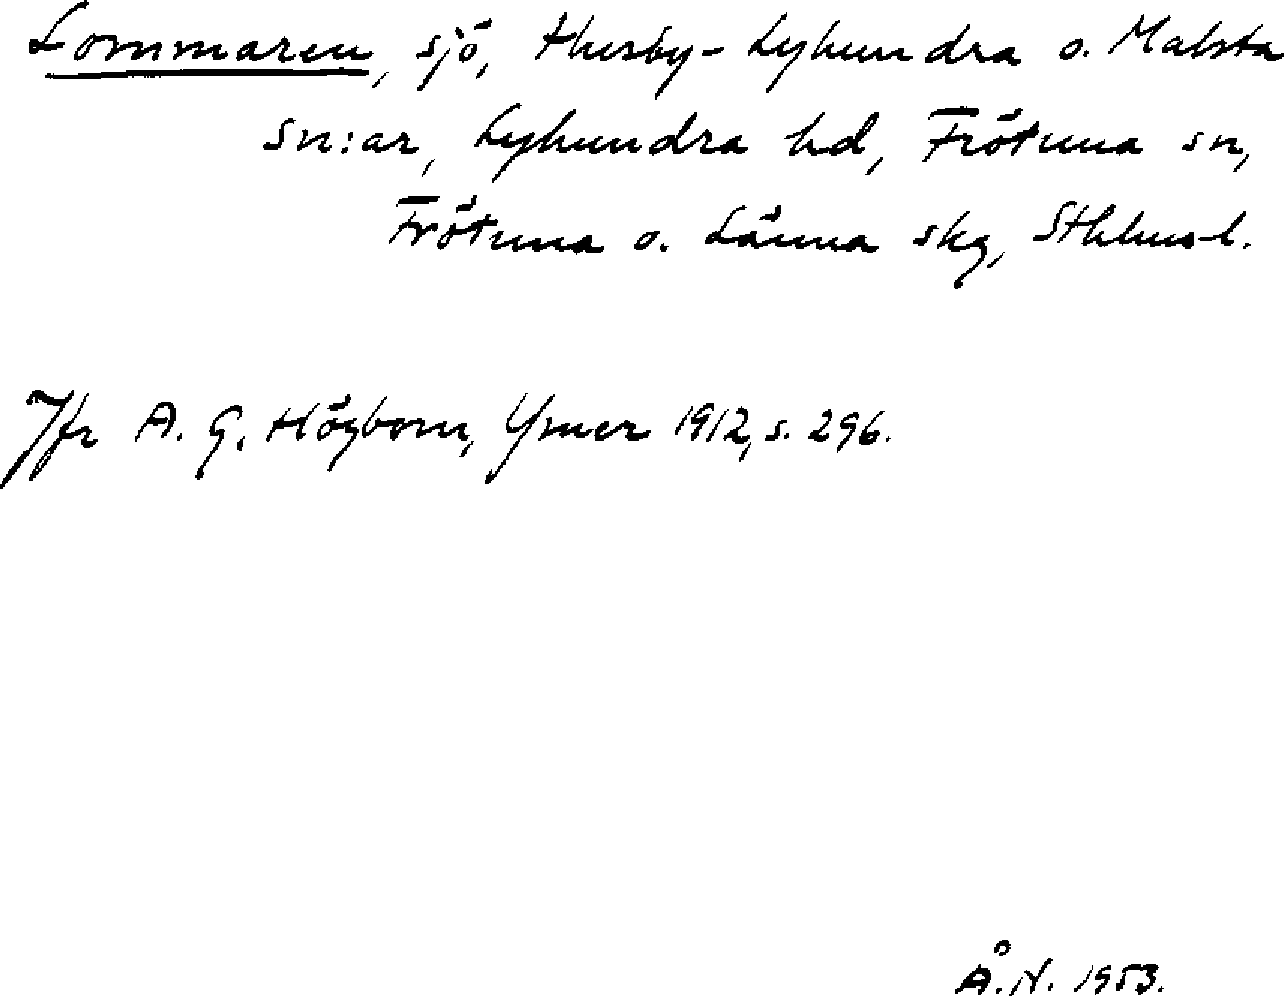 Lommaren, sjö, Husby-Lyhundra o. Malsta
sn:ar, Lyhundra hd, Frötuna sn,
Frötuna o. Länna skg, Sthlms l.
Jfr A. G. Högbom, Ymer 1912, s. 296.
Å. N. 1953.